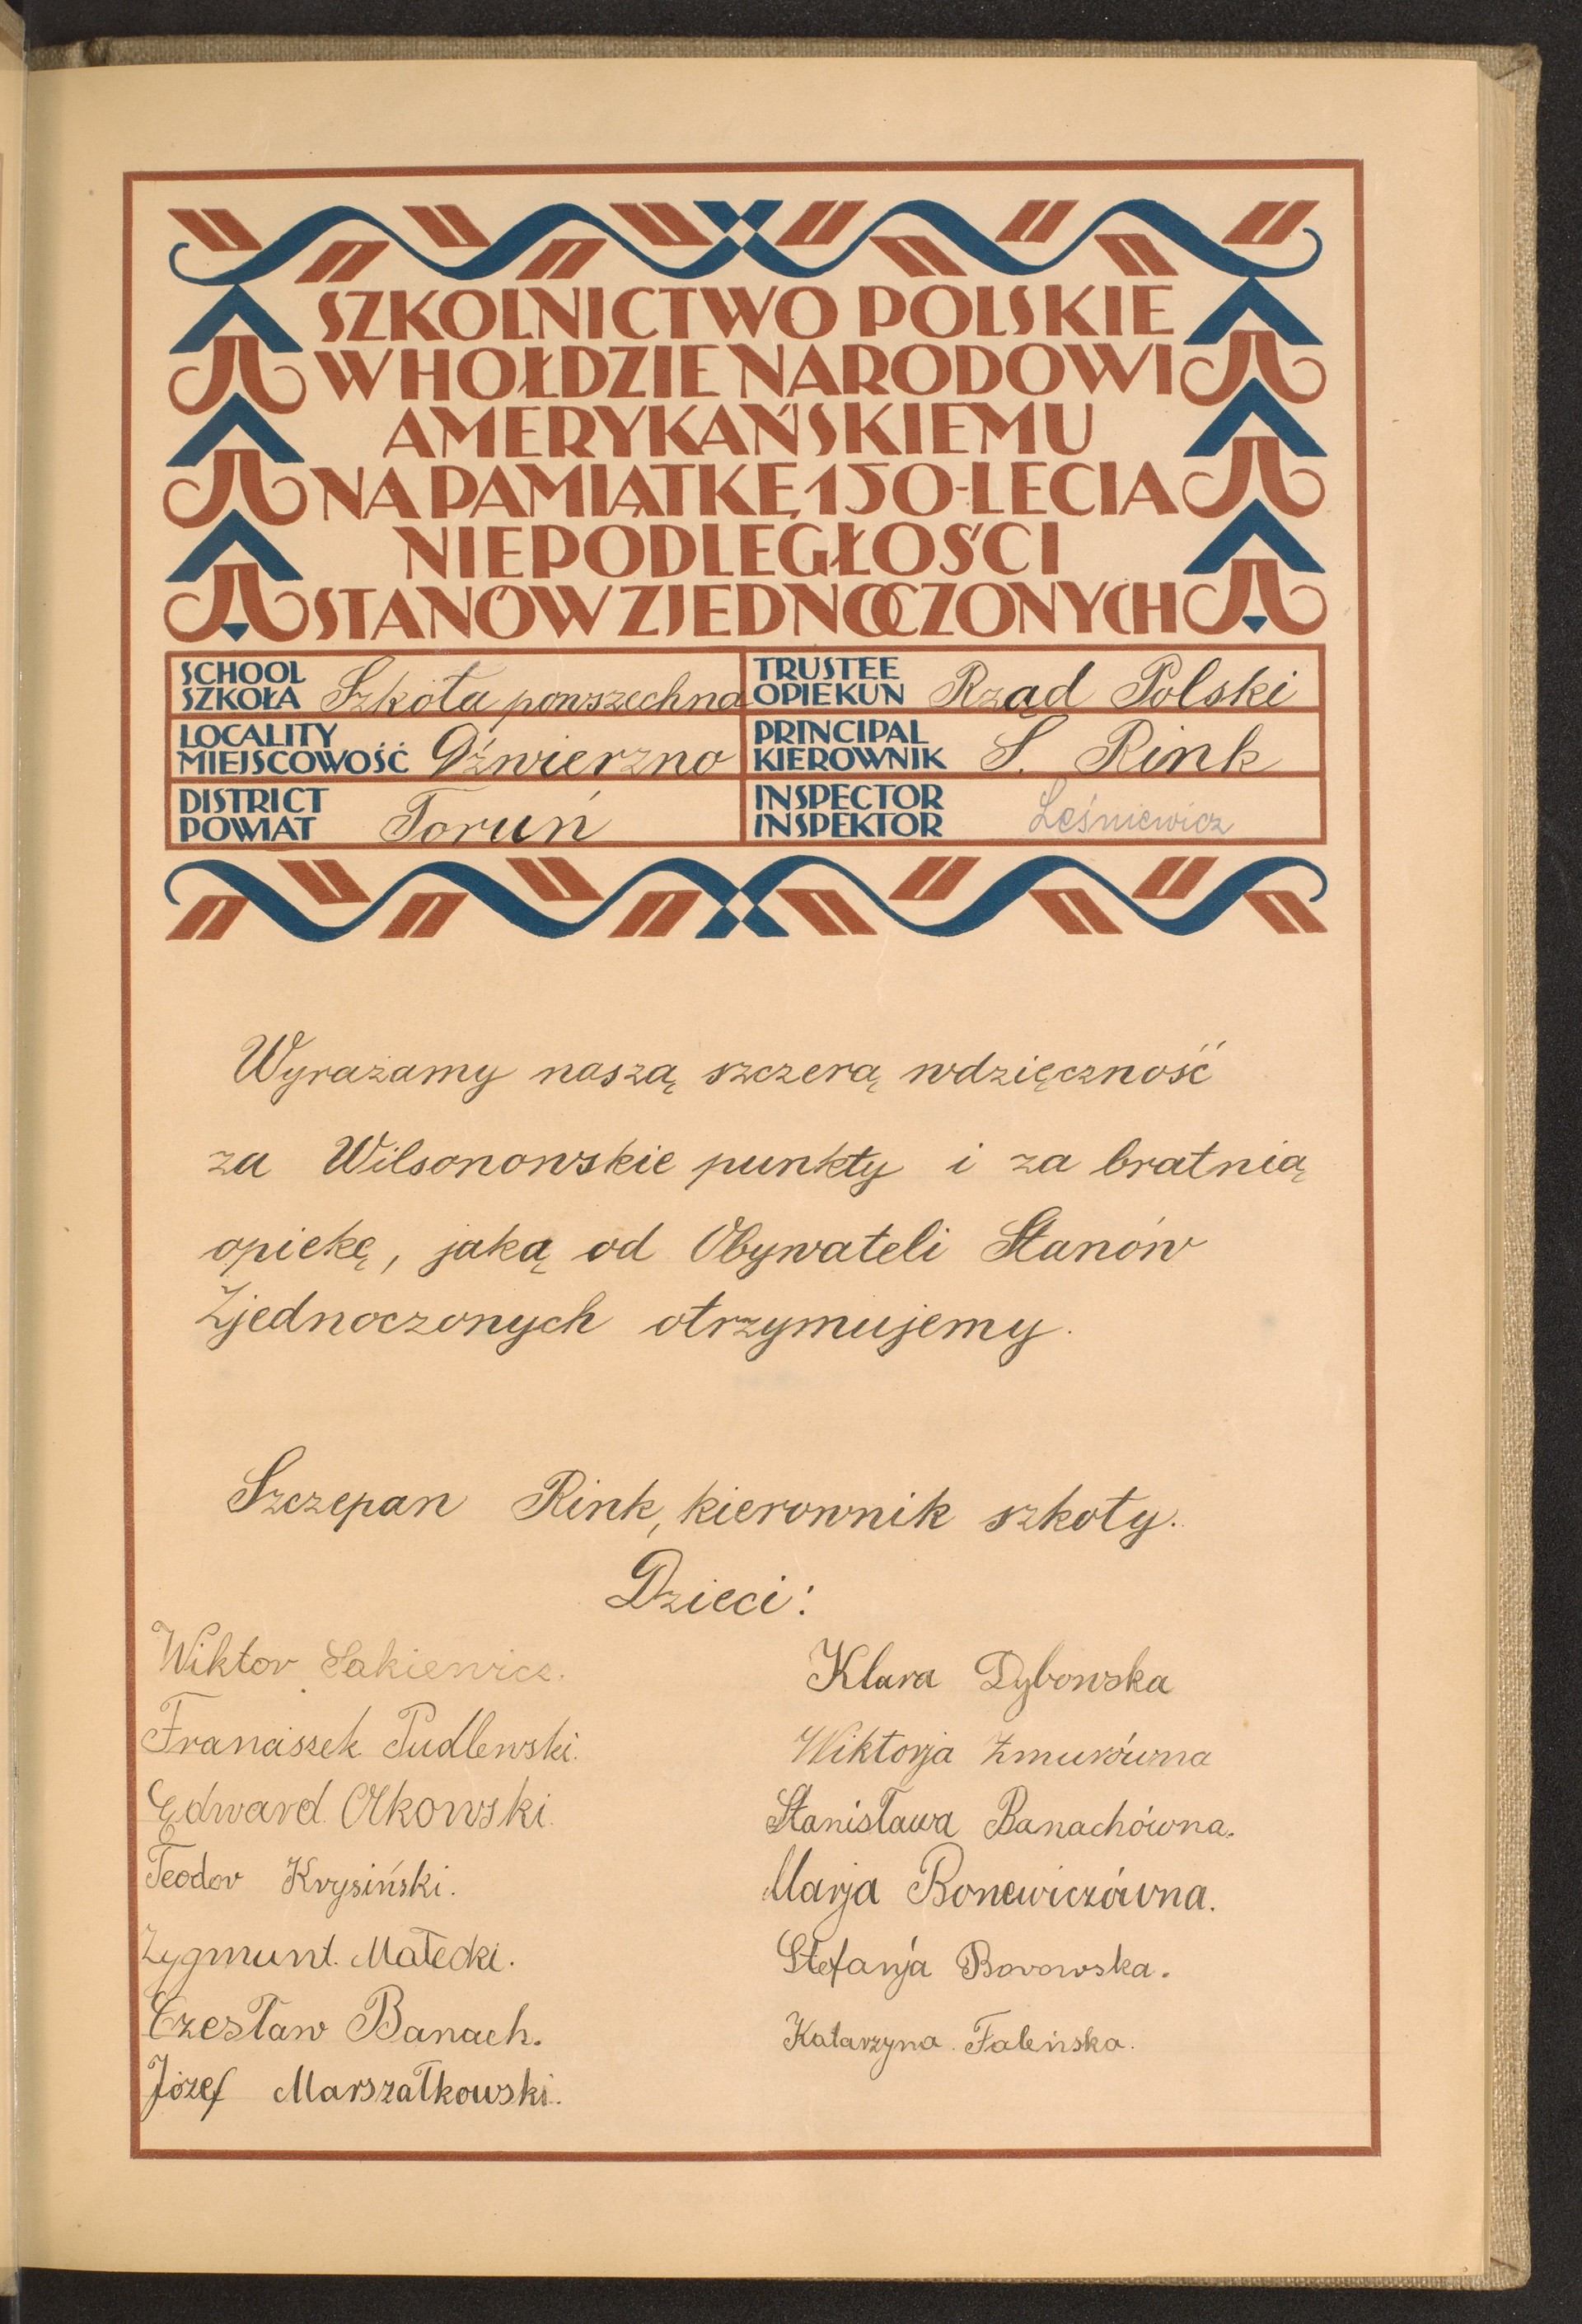 SZKOLNICTWO POLSKIE
W HOŁDZIE NARODOWI
AMERYKAŃSKIEMU
NA PAMIĄTKĘ 150-LECIA
NIEPODLEGŁOŚCI
STANÓW ZJEDNOCZONYCH
SCHOOL
SZKOŁA Szkoła powszechna
TRUSTEE
OPIEKUN Rząd Polski
LOCALITY
MIEJSCOWOŚĆ Dźwierzno
PRINCIPAL
KIEROWNIK S. Rink
DISTRICT
POWIAT Toruń
INSPECTOR
INSPEKTOR Leśniewicz
Wyrażamy naszą szczerą wdzięczność
za Wilsonowskie punkty i za bratnią
opiekę, jaką od Obywateli Stanów
Zjednoczonych otrzymujemy.
Szczepan Rink, kierownik szkoły.
Dzieci:
Wiktor Sakiewicz.
Franciszek Pudlewski.
Edward Olkowski.
Teodor Krysiński.
Zygmunt. Małecki.
Czesław Banach.
Józef Marszałkowski.
Klara Dybowska
Wiktorja Żmurówna
Stanisława Banachówna.
Marja Bonewiczówna.
Stefanja Borowska.
Katarzyna. Faleńska.